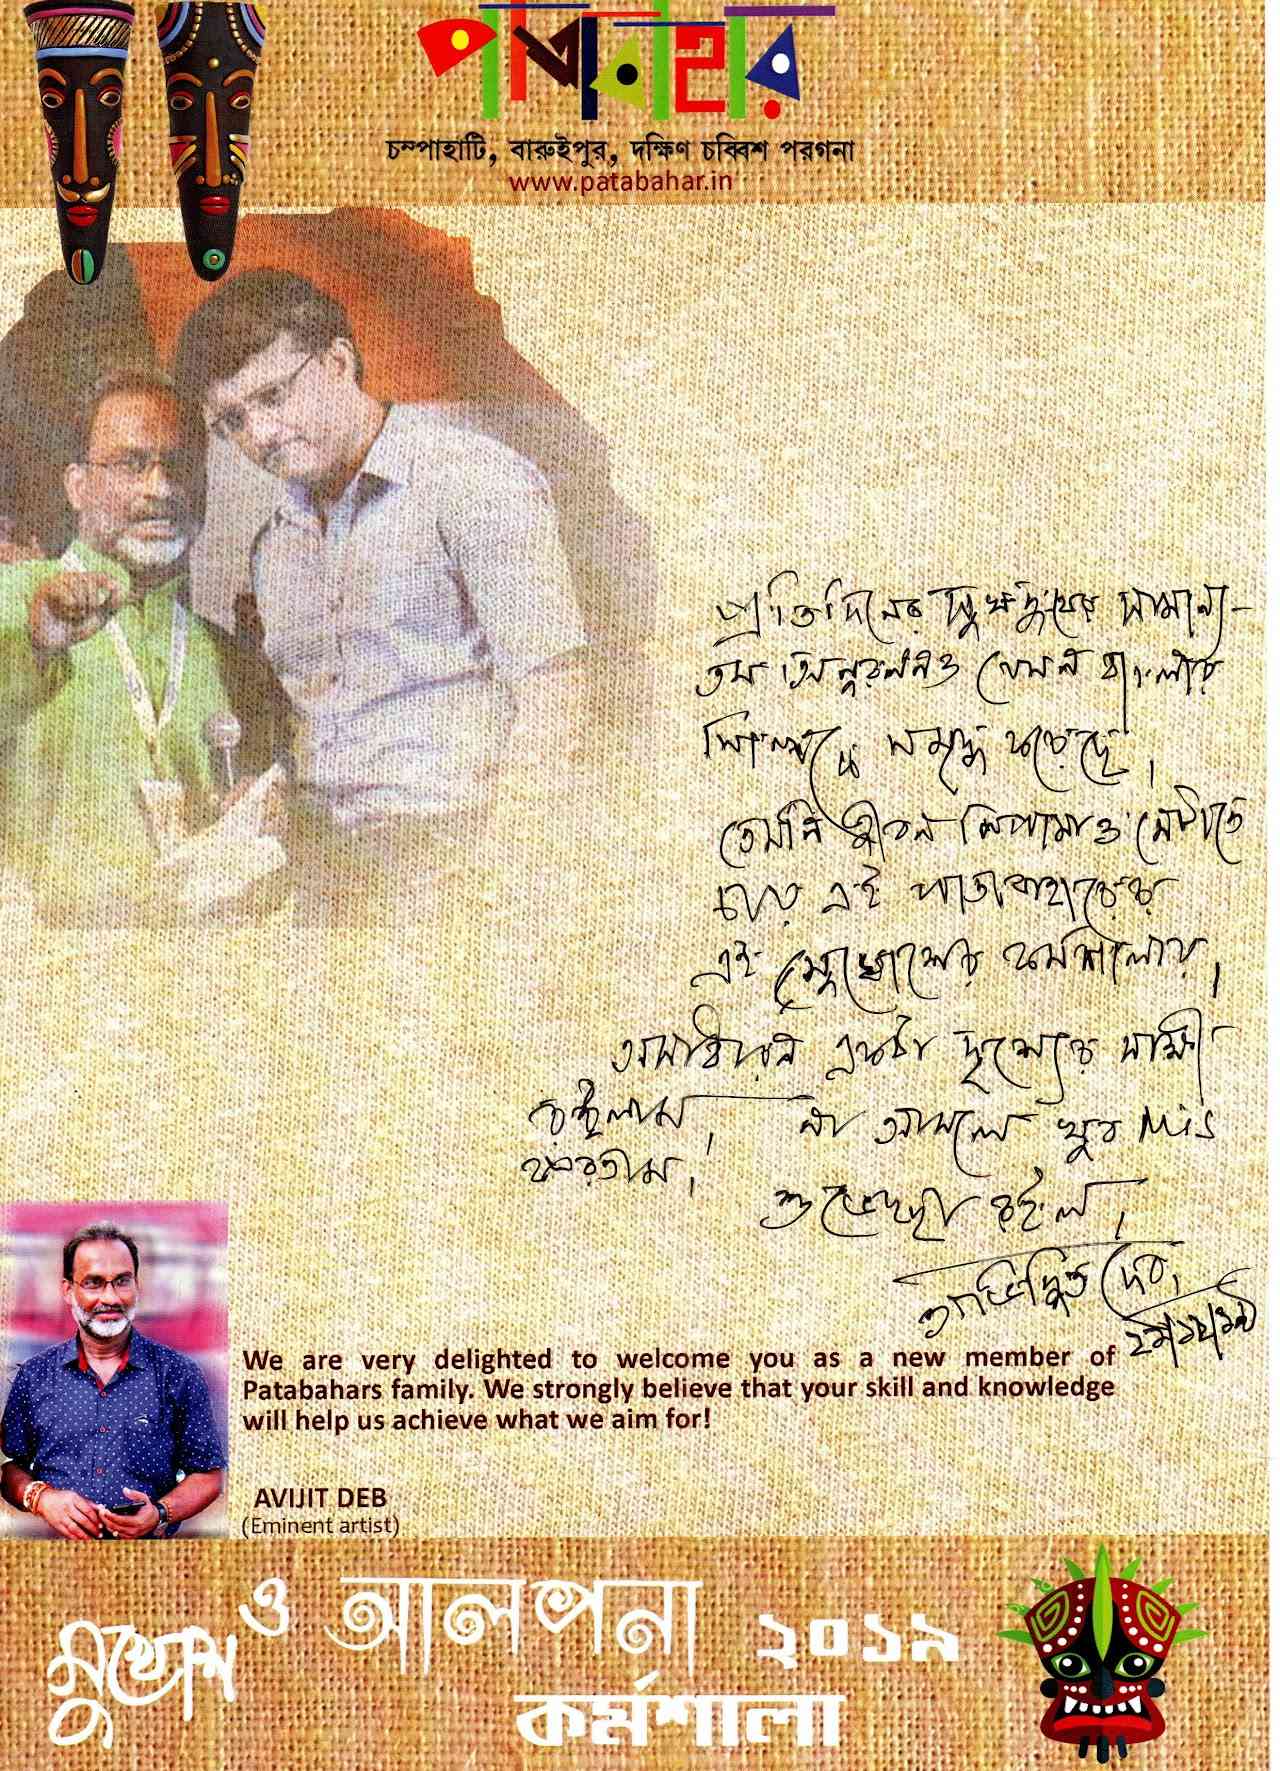 পাতাবাহার
চম্পাহাটি, বারুইপুর, দক্ষিণ চব্বিশ পরগনা
www.patabahar.in
প্রতিদিনের সুখদুঃখের সামান্য-
তম অনুরণনও যেমন বাংলার
শিল্পকে সমৃদ্ধ করেছে,
তেমনি জীবন পিপাসাও মেটাতে
এই পাতাবাহারের
এই মুখোশের কর্মশালায়,
অসাধারন একটা দৃশ্যের সাক্ষী
রইলাম, না আসলে খুব Miss
করতাম,
শুভেচ্ছা রইল,
অভিজিত দেব,
We are very delighted to welcome you as a new member of
Patabahars family. We strongly believe that your skill and knowledge
will help us achieve what we aim for!
AVIJIT DEB
(Eminent artist)
মুখোশ ও আলপনা ২০১৯
কর্মশালা